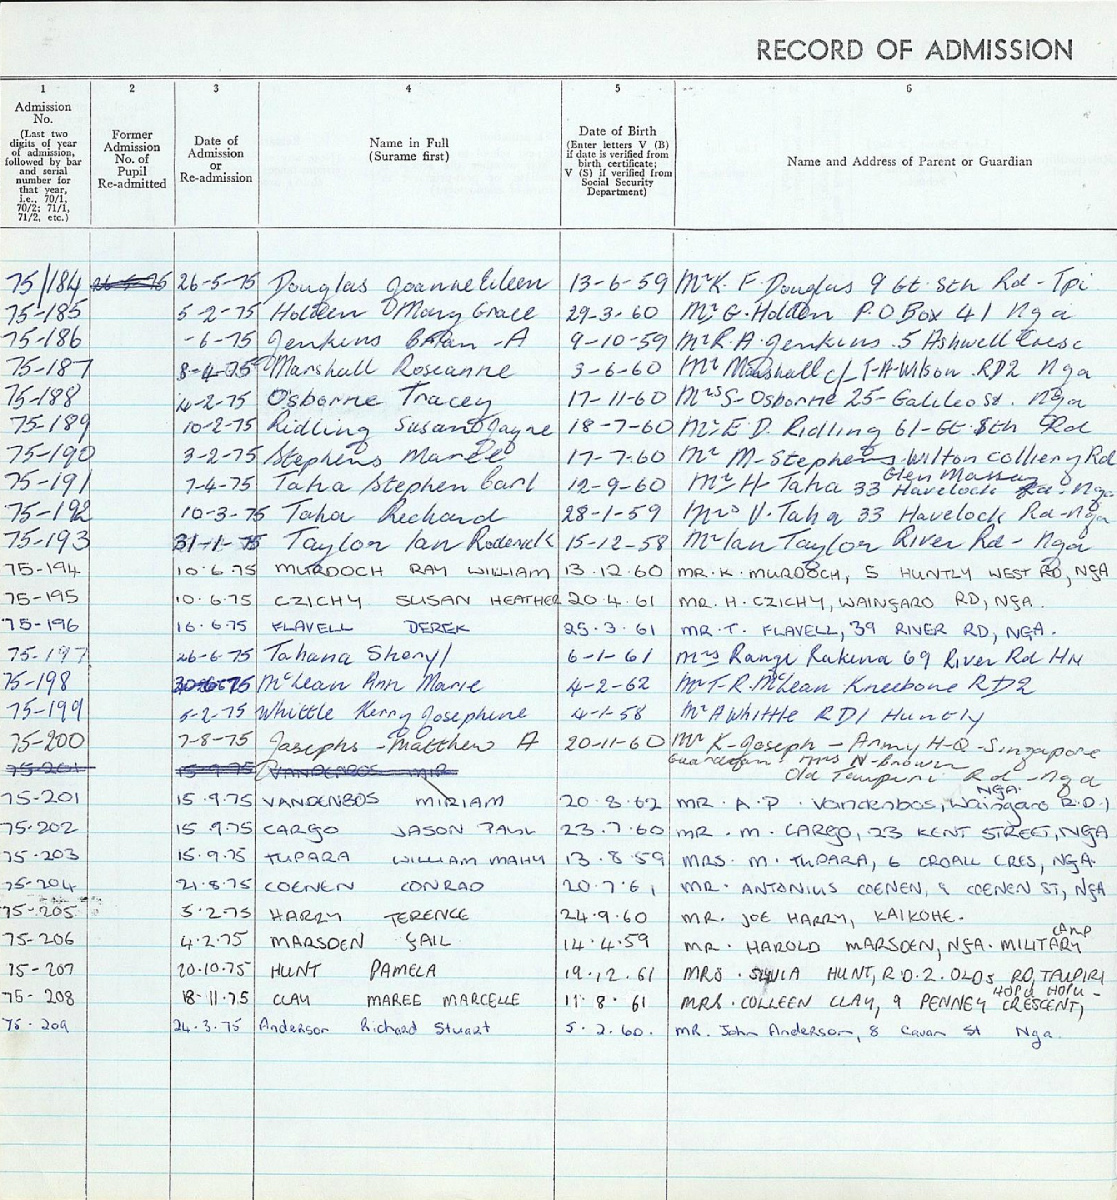 RECORD OF ADMISSION
1 2 3 4 5 6
Admission No. (Last two digits of year of admission, followed by bar and serial number for that year, i.e., 70/1, 70/2; 71/1, 71/2, etc.)
Former Admission No. of Pupil Re-admitted
Date of Admission or Re-admission
Name in Full (Surame first)
Date of Birth (Enter letters V (B) if date is verified from birth certificate; V (S) if verified from Social Security Department)
Name and Address of Parent or Guardian
75/184 26-5-75 26-5-75 Douglas Joanne Eileen 13-6-59 Mr K. F Douglas 9 Gt Sth Rd - Tpi
75-185 5-2-75 Holden Mary Grace 29-3-60 Mr G. Holden P.O Box 41 Nga
75-186 -6-75 Jenkins Brian -A 9-10-59 Mr R.A. Jenkins. 5 Ashwell Cresc
75-187 8-4-75 Marshall Roseanne 3-6-60 Mr Marshall c/ T-A-Wilson. RD2 Nga
75-188 4-2-75 Osborne Tracey 17-11-60 Mrs S- Osborne 25- Galileo St. Nga
75-189 10-2-75 Ridling Susan Jayne 18-7-60 Mr E D. Ridling 61-Gt Sth Rd
75-190 3-2-75 Stephens Maree 17-7-60 Mr M-Stephens Wilton Colliery Rd
Glen Massey
75-191 7-4-75 Taha Stephen Carl 12-9-60 Mr H- Taha 33 Havelock Rd-Nga
75-192 10-3-75 Taha Richard 28-1-59 Mrs V. Taha 33 Havelock Rd-Nga
75-193 31-1-75 Taylor Ian Roderick 15-12-58 Mr Ian Taylor River Rd - Nga
75-194 10.6.75 MURDOCH RAY WILLIAM 13.12.60 MR. K. MURDOCH, 5 HUNTLY WEST RD, NGA
75-195 10.6.75 CZICHY SUSAN HEATHER 20.4.61 MR. H. CZICHY, WAINGARO RD, NGA.
75-196 16.6.75 FLAVELL DEREK 25.3.61 MR. T. FLAVELL, 39 RIVER RD, NGA.
75-197 26-6-75 Tahana Sheryl 6-1-61 Mrs Rangi Rakena 69 River Rd HN
75-198 30-6-75 McLean Ann Marie 4-2-62 Mr T-R. McLean Kneebone RD2
75-199 5-2-75 Whittle Kerry Josephine 4-1-58 Mr A Whittle RD1 Huntly
75-200 7-8-75 Josephs - Matthew A 20-11-60 Mr K-Joseph - Army H-Q-Singapore
Guardian Mrs N-Brown
75-201 15.9.75 VANDENBOS MIR Old Taupiri Rd -Nga
NGA.
75-201 15.9.75 VANDENBOS MIRIAM 20.8.62 MR. A.P. Vandenbos, Waingaro R.D.1
75-202 15.9.75 CARGO JASON PAUL 23.7.60 MR. M. CARGO, 23 KENT STREET, NGA
75-203 15.9.75 TUPARA WILLIAM MAHY 13.8.59 MRS. M. TUPARA, 6 CROALL CRES, NGA.
75-204 21.8.75 COENEN CONRAD 20.7.61 MR. ANTONIUS COENEN, 8 COENEN ST, NGA
75-205 5.2.75 HARRY TERENCE 24.9.60 MR. JOE HARRY, KAIKOHE.
CAMP
75-206 4.2.75 MARSDEN GAIL 14.4.59 MR. HAROLD MARSDEN, NGA. MILITARY
75-207 20.10.75 HUNT PAMELA 19.12.61 MRS. SYLVIA HUNT, R.D.2. OLD RD, TAUPIRI
HOPU HOPU-
75-208 18.11.75 CLAY MAREE MARCELLE 11.8.61 MRS. COLLEEN CLAY, 9 PENNEY CRESCENT,
75-209 24.3.75 Anderson Richard Stuart 5.2.60. MR. John Anderson, 8 Cavan St Nga.